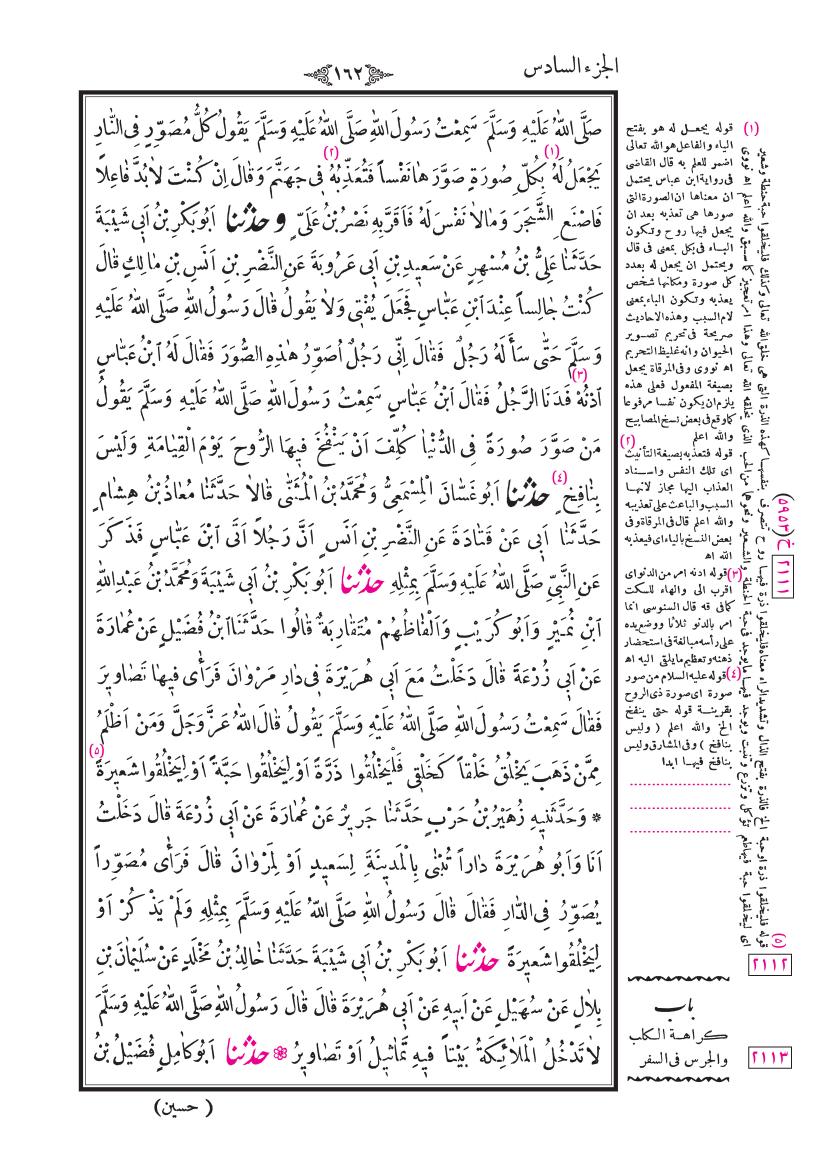 الجزء السادس
١٦٢
صَلَّى اللهُ عَلَيْهِ وَسَلَّمَ سَمِعْتُ رَسُولَ اللهِ صَلَّى اللهُ عَلَيْهِ وَسَلَّمَ يَقُولُ كُلُّ مُصَوِّرٍ فِى النَّارِ
يَجْعَلُ لَهُ (١) بِكُلِّ صُورَةٍ صَوَّرَهَا نَفْساً فَتُعَذِّبُهُ (٢) فِى جَهَنَّمَ وَقَالَ اِنْ كُنْتَ لَابُدَّ فَاعِلاً
فَاصْنَعِ الشَّجَرَ وَمَالاَ نَفْسَ لَهُ فَاَقَرَّبِهِ نَصْرُ بْنُ عَلِىٍّ وحدثنا اَبُوبَكْرِ بْنُ اَبِى شَيْبَةَ
حَدَّثَنَا عَلِىُّ بْنُ مُسْهِرٍ عَنْ سَعِيدِ بْنِ اَبِى عَرُوبَةَ عَنِ النَّضْرِ بْنِ اَنَسِ بْنِ مَالِكٍ قَالَ
كُنْتُ جَالِساً عِنْدَ ابْنِ عَبَّاسٍ فَجَعَلَ يُفْتِى وَلاَ يَقُولُ قَالَ رَسُولُ اللهِ صَلَّى اللهُ عَلَيْهِ
وَسَلَّمَ حَتَّى سَأَلَهُ رَجُلٌ فَقَالَ اِنِّى رَجُلٌ اُصَوِّرُ هٰذِهِ الصُّوَرَ فَقَالَ لَهُ ابْنُ عَبَّاسٍ
اُدْنُهْ (٣) فَدَنَا الرَّجُلُ فَقَالَ ابْنُ عَبَّاسٍ سَمِعْتُ رَسُولَ اللهِ صَلَّى اللهُ عَلَيْهِ وَسَلَّمَ يَقُولُ
مَنْ صَوَّرَ صُورَةً فِى الدُّنْيَا كُلِّفَ اَنْ يَنْفُخَ فِيهَا الرُّوحَ يَوْمَ الْقِيَامَةِ وَلَيْسَ
بِنَافِخٍ (٤) حدثنا اَبُوغَسَّانَ الْمِسْمَعِىُّ وَمُحَمَّدُ بْنُ الْمُثَنَّى قَالاَ حَدَّثَنَا مُعَاذُ بْنُ هِشَامٍ
حَدَّثَنَا اَبِى عَنْ قَتَادَةَ عَنِ النَّضْرِ بْنِ اَنَسٍ اَنَّ رَجُلاً اَتَى ابْنَ عَبَّاسٍ فَذَكَرَ
عَنِ النَّبِىِّ صَلَّى اللهُ عَلَيْهِ وَسَلَّمَ بِمِثْلِهِ حدثنا اَبُوبَكْرِ بْنُ اَبِى شَيْبَةَ وَمُحَمَّدُ بْنُ عَبْدِ اللهِ
ابْنِ نُمَيْرٍ وَاَبُوكُرَيْبٍ وَاَلْفَاظُهُمْ مُتَقَارِبَةٌ قَالُوا حَدَّثَنَا ابْنُ فُضَيْلٍ عَنْ عُمَارَةَ
عَنْ اَبِى زُرْعَةَ قَالَ دَخَلْتُ مَعَ اَبِى هُرَيْرَةَ فِى دَارِ مَرْوَانَ فَرَأَى فِيهَا تَصَاوِيرَ
فَقَالَ سَمِعْتُ رَسُولَ اللهِ صَلَّى اللهُ عَلَيْهِ وَسَلَّمَ يَقُولُ قَالَ اللهُ عَزَّ وَجَلَّ وَمَنْ اَظْلَمُ
مِمَّنْ ذَهَبَ يَخْلُقُ خَلْقاً كَخَلْقِى فَلْيَخْلُقُوا ذَرَّةً اَوْ لِيَخْلُقُوا حَبَّةً اَوْ لِيَخْلُقُوا شَعِيرَةً (٥)
* وَحَدَّثَنِيهِ زُهَيْرُ بْنُ حَرْبٍ حَدَّثَنَا جَرِيرٌ عَنْ عُمَارَةَ عَنْ اَبِى زُرْعَةَ قَالَ دَخَلْتُ
اَنَا وَاَبُو هُرَيْرَةَ دَاراً تُبْنَى بِالْمَدِينَةِ لِسَعِيدٍ اَوْ لِمَرْوَانَ قَالَ فَرَأَى مُصَوِّراً
يُصَوِّرُ فِى الدَّارِ فَقَالَ قَالَ رَسُولُ اللهِ صَلَّى اللهُ عَلَيْهِ وَسَلَّمَ بِمِثْلِهِ وَلَمْ يَذْكُرْ اَوْ
لِيَخْلُقُوا شَعِيرَةً حدثنا اَبُوبَكْرِ بْنُ اَبِى شَيْبَةَ حَدَّثَنَا خَالِدُ بْنُ مَخْلَدٍ عَنْ سُلَيْمَانَ بْنِ
بِلاَلٍ عَنْ سُهَيْلٍ عَنْ اَبِيهِ عَنْ اَبِى هُرَيْرَةَ قَالَ قَالَ رَسُولُ اللهِ صَلَّى اللهُ عَلَيْهِ وَسَلَّمَ
لاَ تَدْخُلُ الْمَلاَئِكَةُ بَيْتاً فِيهِ تَمَاثِيلُ اَوْ تَصَاوِيرُ حدثنا اَبُوكَامِلٍ فُضَيْلُ بْنُ
( حسين )
(١) قوله يجعل له هو بفتح
الياء والفاعل هو الله تعالى
اضمر للعلم به قال القاضى
فى رواية ابن عباس يحتمل
ان معناها ان الصورة التى
صورها هى تعذبه بعد ان
يجعل فيها روح وتكون
الباء فى بكل بمعنى فى قال
ويحتمل ان يجعل له بعدد
كل صورة ومكانها شخص
يعذبه وتكون الباء بمعنى
لام السبب وهذه الاحاديث
صريحة فى تحريم تصوير
الحيوان وانه غليظ التحريم
اه نووى وفى المرقاة يجعل
بصيغة المفعول فعلى هذه
يلزم ان يكون نفسا مرفوعا
كما وقع فى بعض نسخ المصابيح
والله اعلم
(٢) قوله فتعذبه بصيغة التأنيث
اى تلك النفس واسناد
العذاب اليها مجاز لانها
السبب والباعث على تعذيبه
والله اعلم قال فى المرقاة وفى
بعض النسخ بالياء اى فيعذبه
الله اه
(٣) قوله ادنه امر من الدنو اى
اقرب الى والهاء للسكت
كما فى قه قال السنوسى انما
امر بالدنو ثلاثا ووضع يده
على رأسه مبالغة فى استحضار
ذهنه وتعظيم مايلقى اليه اه
(٤) قوله عليه السلام من صور
صورة اى صورة ذى الروح
بقرينة قوله حتى ينفخ
الخ والله اعلم ( وليس
بنافخ ) وفى المشارق وليس
بنافخ فيها ابدا
(٥) قوله فليخلقوا ذرة اوحبة الخ فالذرة بفتح الذال وتشديد الراء معناه فليخلقوا ذرة فيها روح تتصرف بنفسها كهذه الذرة التى هى خلق الله تعالى وكذلك فليخلقوا حبة حنطة وشعير
اى ليخلقوا حبة فيها طعم تؤكل وتزرع وتنبت ويوجد فيها مايوجد فى حبة الحنطة والشعير ونحوها من الحب الذى يخلقه الله تعالى وهذا امر تعجيز كما سبق والله اعلم اه نووى
خ (٥٩٥٣)
٢١١١
٢١١٢
باب
كراهة الكلب
والجرس فى السفر
٢١١٣